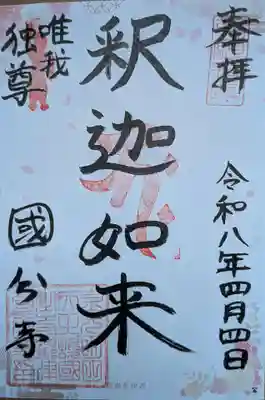 奉拝
令和八年四月四日
釈迦如来
唯我
独尊
國分寺